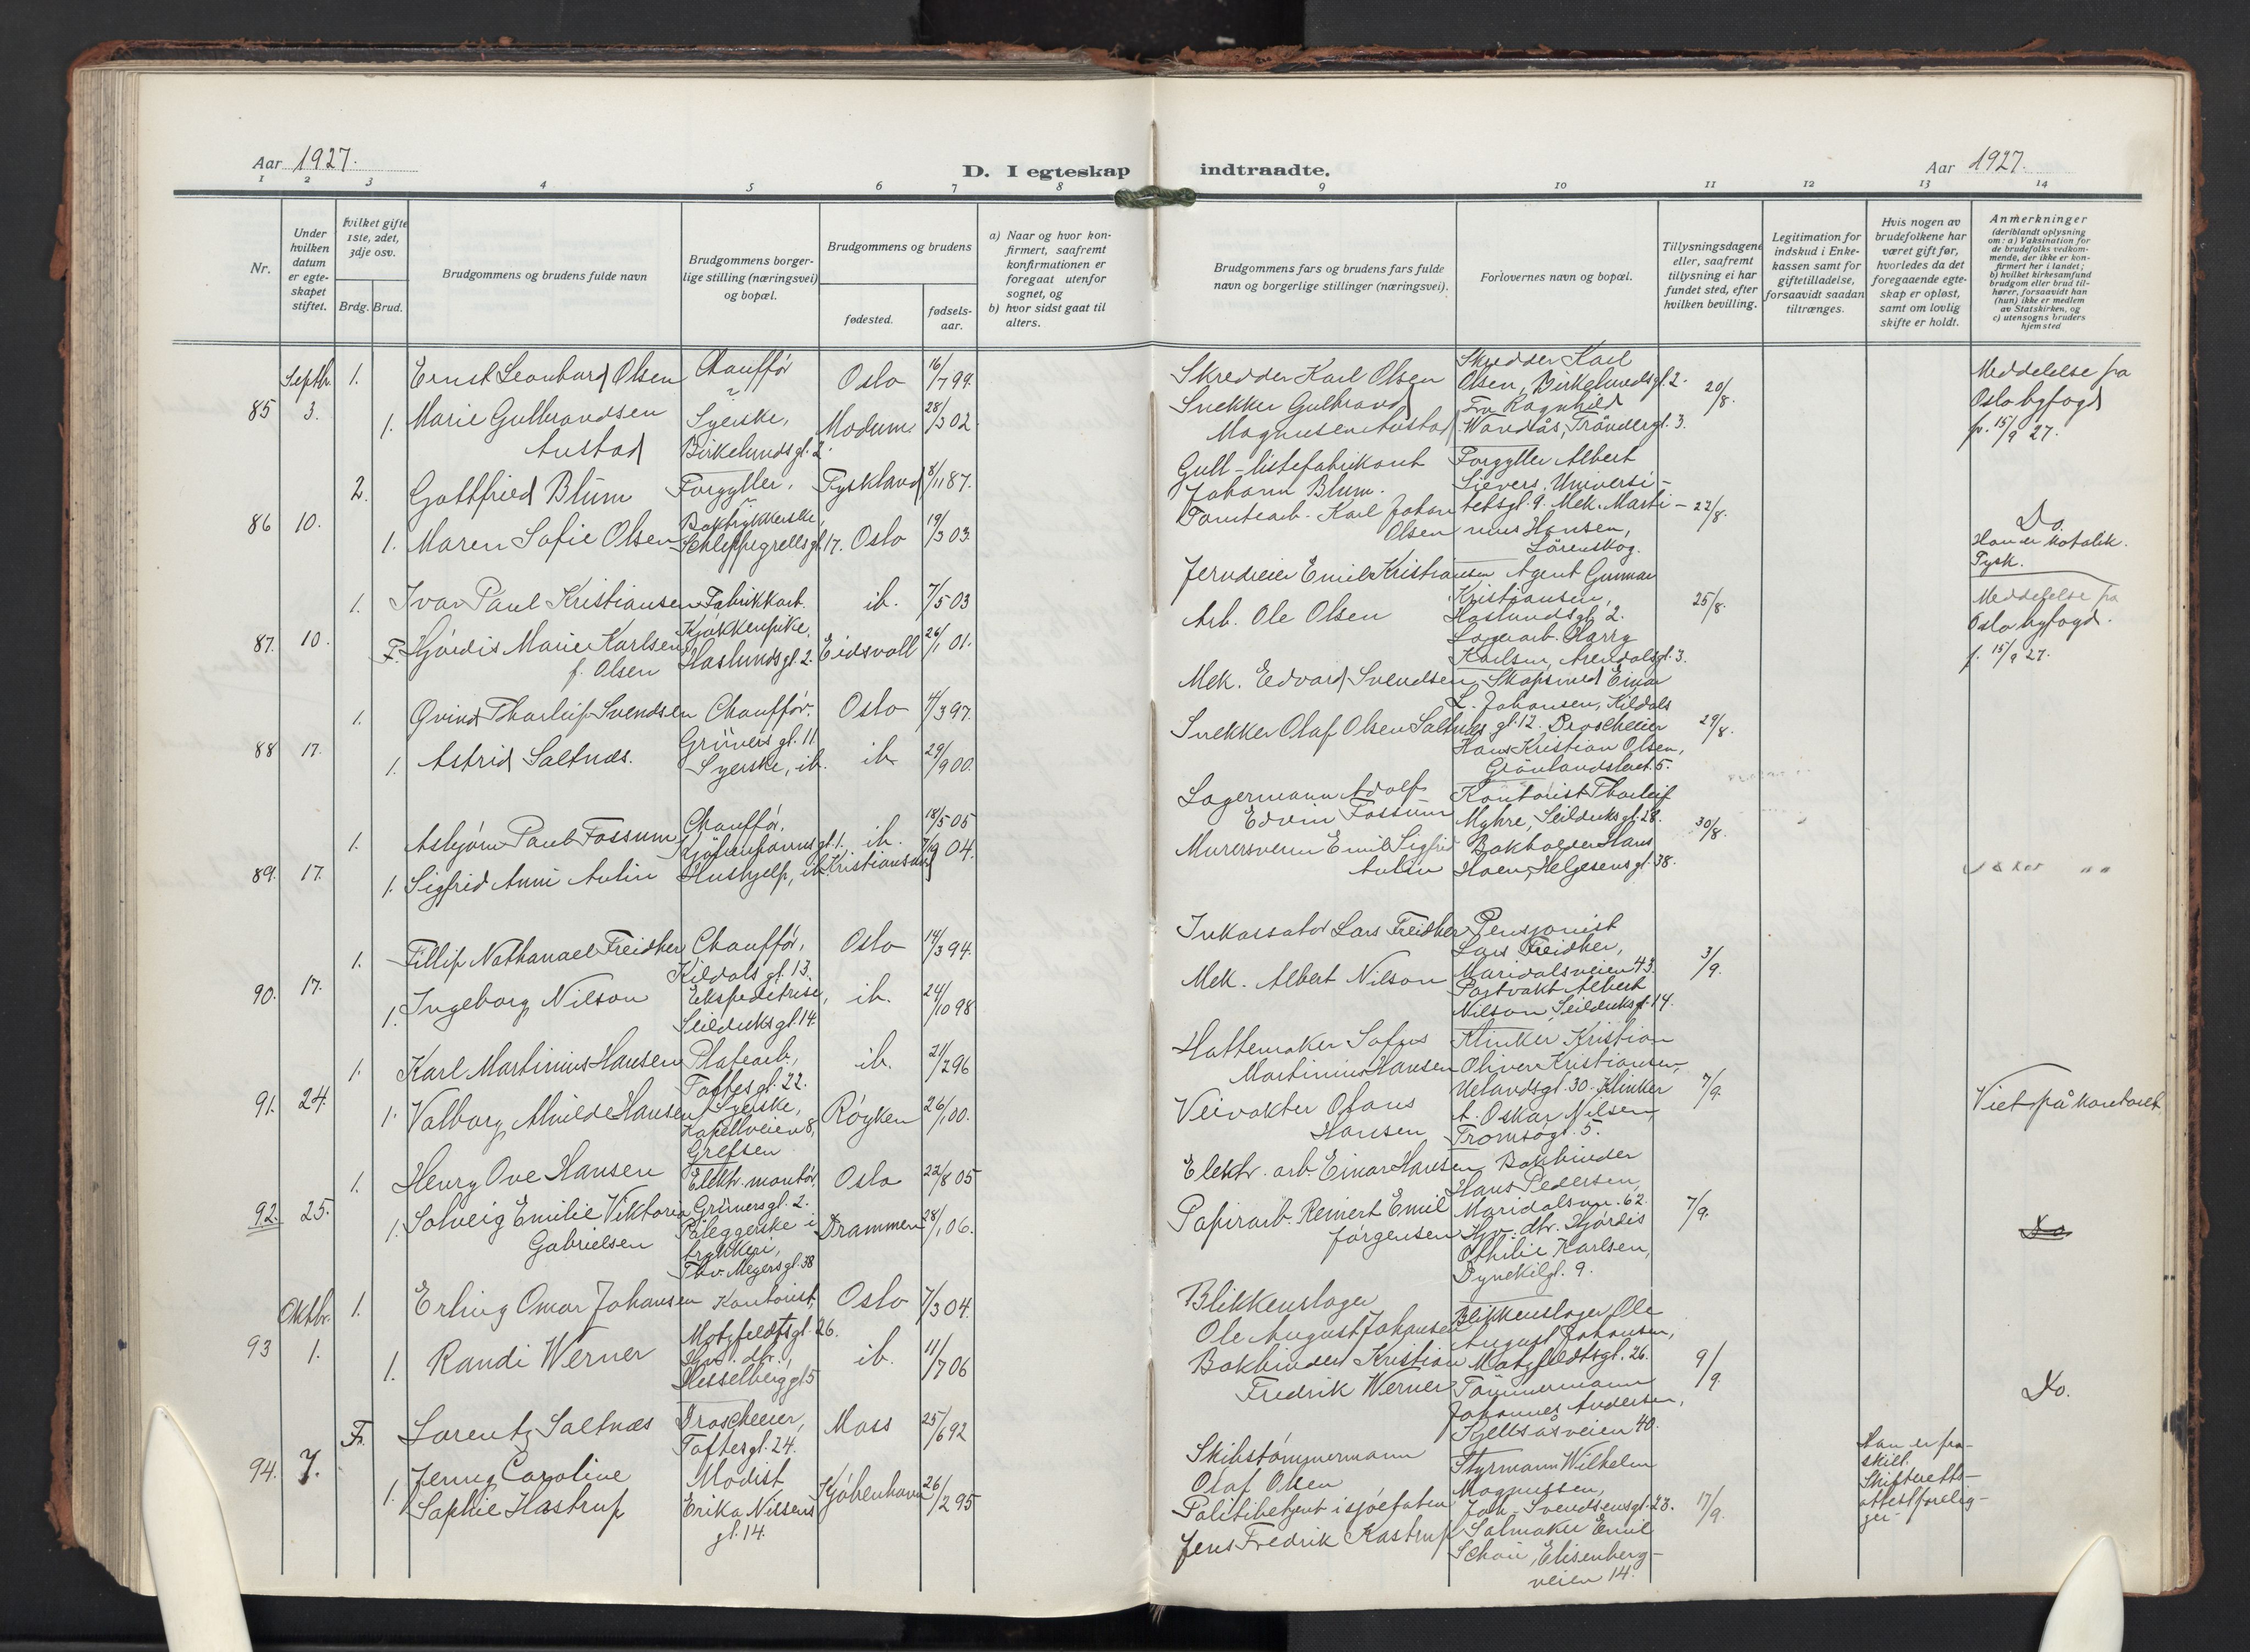 Aar 1927.
D. I egteskap indtraadte.
Aar 1927.
1 2 3 4 5 6 7 8 9 10 11 12 13 14
Nr.
Under hvilken datum er egteskapet stiftet.
Hvilket gifte 1ste, 2det, 3dje osv.
Brdg. Brud.
Brudgommens og brudens fulde navn
Brudgommens borgerlige stilling (næringsvei) og bopæl.
Brudgommens og brudens
fødested.
fødselsaar.
a) Naar og hvor konfirmert, saafremt konfirmationen er foregaat utenfor sognet, og
b) hvor sidst gaat til alters.
Brudgommens fars og brudens fars fulde navn og borgerlige stillinger (næringsvei).
Forlovernes navn og bopæl.
Tillysningsdagene eller, saafremt tillysning ei har fundet sted, efter hvilken bevilling.
Legitimation for indskud i Enkekassen samt for giftetilladelse, forsaavidt saadan tiltrænges.
Hvis nogen av brudefolkene har været gift før, hvorledes da det foregaaende egteskap er opløst, samt om lovlig skifte er holdt.
Anmerkninger (deriblandt oplysning om: a) Vaksination for de brudefolks vedkommende, der ikke er konfirmert her i landet; b) hvilket kirkesamfund brudgom eller brud tilhører, forsaavidt han (hun) ikke er medlem av Statskirken, og c) utensogns bruders hjemsted
Septbr. 1. Ernst Leonhard Olsen Chauffør Oslo 16/7 99.
85 3. 1. Marie Gulbrandsen Austad Syerske, Birkelundsgt. 2. Modum 28/3 02
Skredder Karl Olsen
Snekker Gulbrand Magnusen Austad
Skredder Karl Olsen, Birkelundsgt. 2.
Fru Ragnhild Wandsås, Trøndergt. 3.
20/8.
Meddelelse fra Oslo byfogd pr. 15/9 27.
2. Gottfried Blum Forgyller, Tyskland 8/11 87.
86 10. 1. Maren Sofie Olsen Boktrykkerske, Schleppegrellsgt. 17. Oslo 19/3 03.
Gull-listefabrikant Johann Blum.
Tomtearb. Karl Johan Olsen
Forgyller Albert Sievers, Universitetsgt. 9. Mek. Martinus Hansen, Lørenskog.
22/8.
Do.
Han er katolik. Tysk.
1. Ivar Paul Kristiansen Fabrikkarb. ib. 7/5 03
87. 10. F. Hjørdis Marie Karlsen f. Olsen Kjøkkenpike, Haslundsgt. 2. Eidsvoll 26/1 01.
Jerndreier Emil Kristiansen
Arb. Ole Olsen
Agent Gunnar Kristiansen, Haslundsgt. 2.
Lagerarb. Harry Karlsen, Arendalsgt. 3.
25/8.
Meddelelse fra Oslo byfogd. f. 15/9 27.
1. Øvind Tharleif Svendsen Chauffør. Grüners gt. 11 Oslo 4/3 97.
88 17. 1. Astrid Saltnæs. Syerske, ib. ib. 29/9 00.
Mek. Edvard Svendsen
Snekker Olaf Olsen Saltnæs
Skapsmed Einar L. Johansen, Kildals gt. 12. Droscheeier Hans Kristian Olsen, Grönlandsleret 5.
29/8.
1. Asbjørn Paul Fossum Chauffør, Kjøbenhavnsgt. 1. ib. 18/5 05
89. 17. 1. Sigfrid Anni Aulin Hushjelp, ib. Kristiansund 7/9 04.
Lagermann Adolf Edvin Fossum
Murersvenn Emil Sigfrid Aulin
Kontorist Tharleif Myhre, Seilduksgt. 28.
Bokholder Hans Hoen, Helgesensgt. 38.
30/8.
1. Fillip Nathanael Freidker Chauffør, Kildals gt. 13. Oslo 14/3 94.
90. 17. 1. Ingeborg Nilson Ekspeditrise, Seilduksgt. 14. ib. 24/10 98
Inkassator Lars Freidker
Mek. Albert Nilson
Pensjonist Lars Freidker, Maridalsveien 43.
Portvakt Albert Nilson, Seilduksgt. 14.
3/9.
1. Karl Martinius Hansen Platearb., Toftes gt. 22. ib. 21/2 96
91. 24. 1. Valborg Alvilde Hansen Syerske, Kapellveien 8, Grefsen Røyken 26/1 00.
Hattemaker Sofus Martinius Hansen
Veivokter Olaus Hansen
Klinker Kristian Oliver Kristiansen, Uelandsgt. 30. Klinker A. Oskar Nilsen, Tromsøgt. 5.
7/9.
Viet på kontoret.
1. Henry Ove Hansen Elektr. montør, Grünersgt. 2. Oslo 22/8 05
92. 25. 1. Solveig Emilie Viktoria Gabrielsen Påleggerske i trykkeri, Thv. Meyersgt. 38 Drammen 28/1 06.
Elektr. arb. Einar Hansen
Papirarb. Reinert Emil Jørgensen
Bokbinder Hans Pedersen, Maridalsvn. 62.
Hjv. dtr. Hjørdis Othilie Karlsen, Dynekilgt. 9.
7/9.
Do
Oktbr. 1. Erling Omar Johansen Kontorist, Motzfeldtsgt. 26. Oslo 7/3 04.
93 1. 1. Randi Werner Hjv. dtr., Hesselberggt. 5 ib. 11/7 06
Blikkenslager Ole August Johansen
Bokbinder Kristian Fredrik Werner
Blikkenslager Ole August Johansen, Motzfeldtsgt. 26.
Tømmermann Johannes Andersen, Kjellsåsveien 40.
9/9.
Do.
Fr. Lorentz Saltnæs Droscheeier, Toftesgt. 24. Moss 25/6 92
94. 7. 1. Jenny Caroline Sophie Kastrup Modist, Erika Nissens gt. 14. Kjøbenhavn 26/2 95
Skibstømmermann Olaf Olsen
Politibetjent i sjøetaten Jens Fredrik Kastrup
Styrmann Wilhelm Magnussen, Joh. Svendsensgt. 23.
Salmaker Emil Schou, Elisenbergveien 14.
17/9.
Han er fraskilt. Skifteretts-attest foreligger.